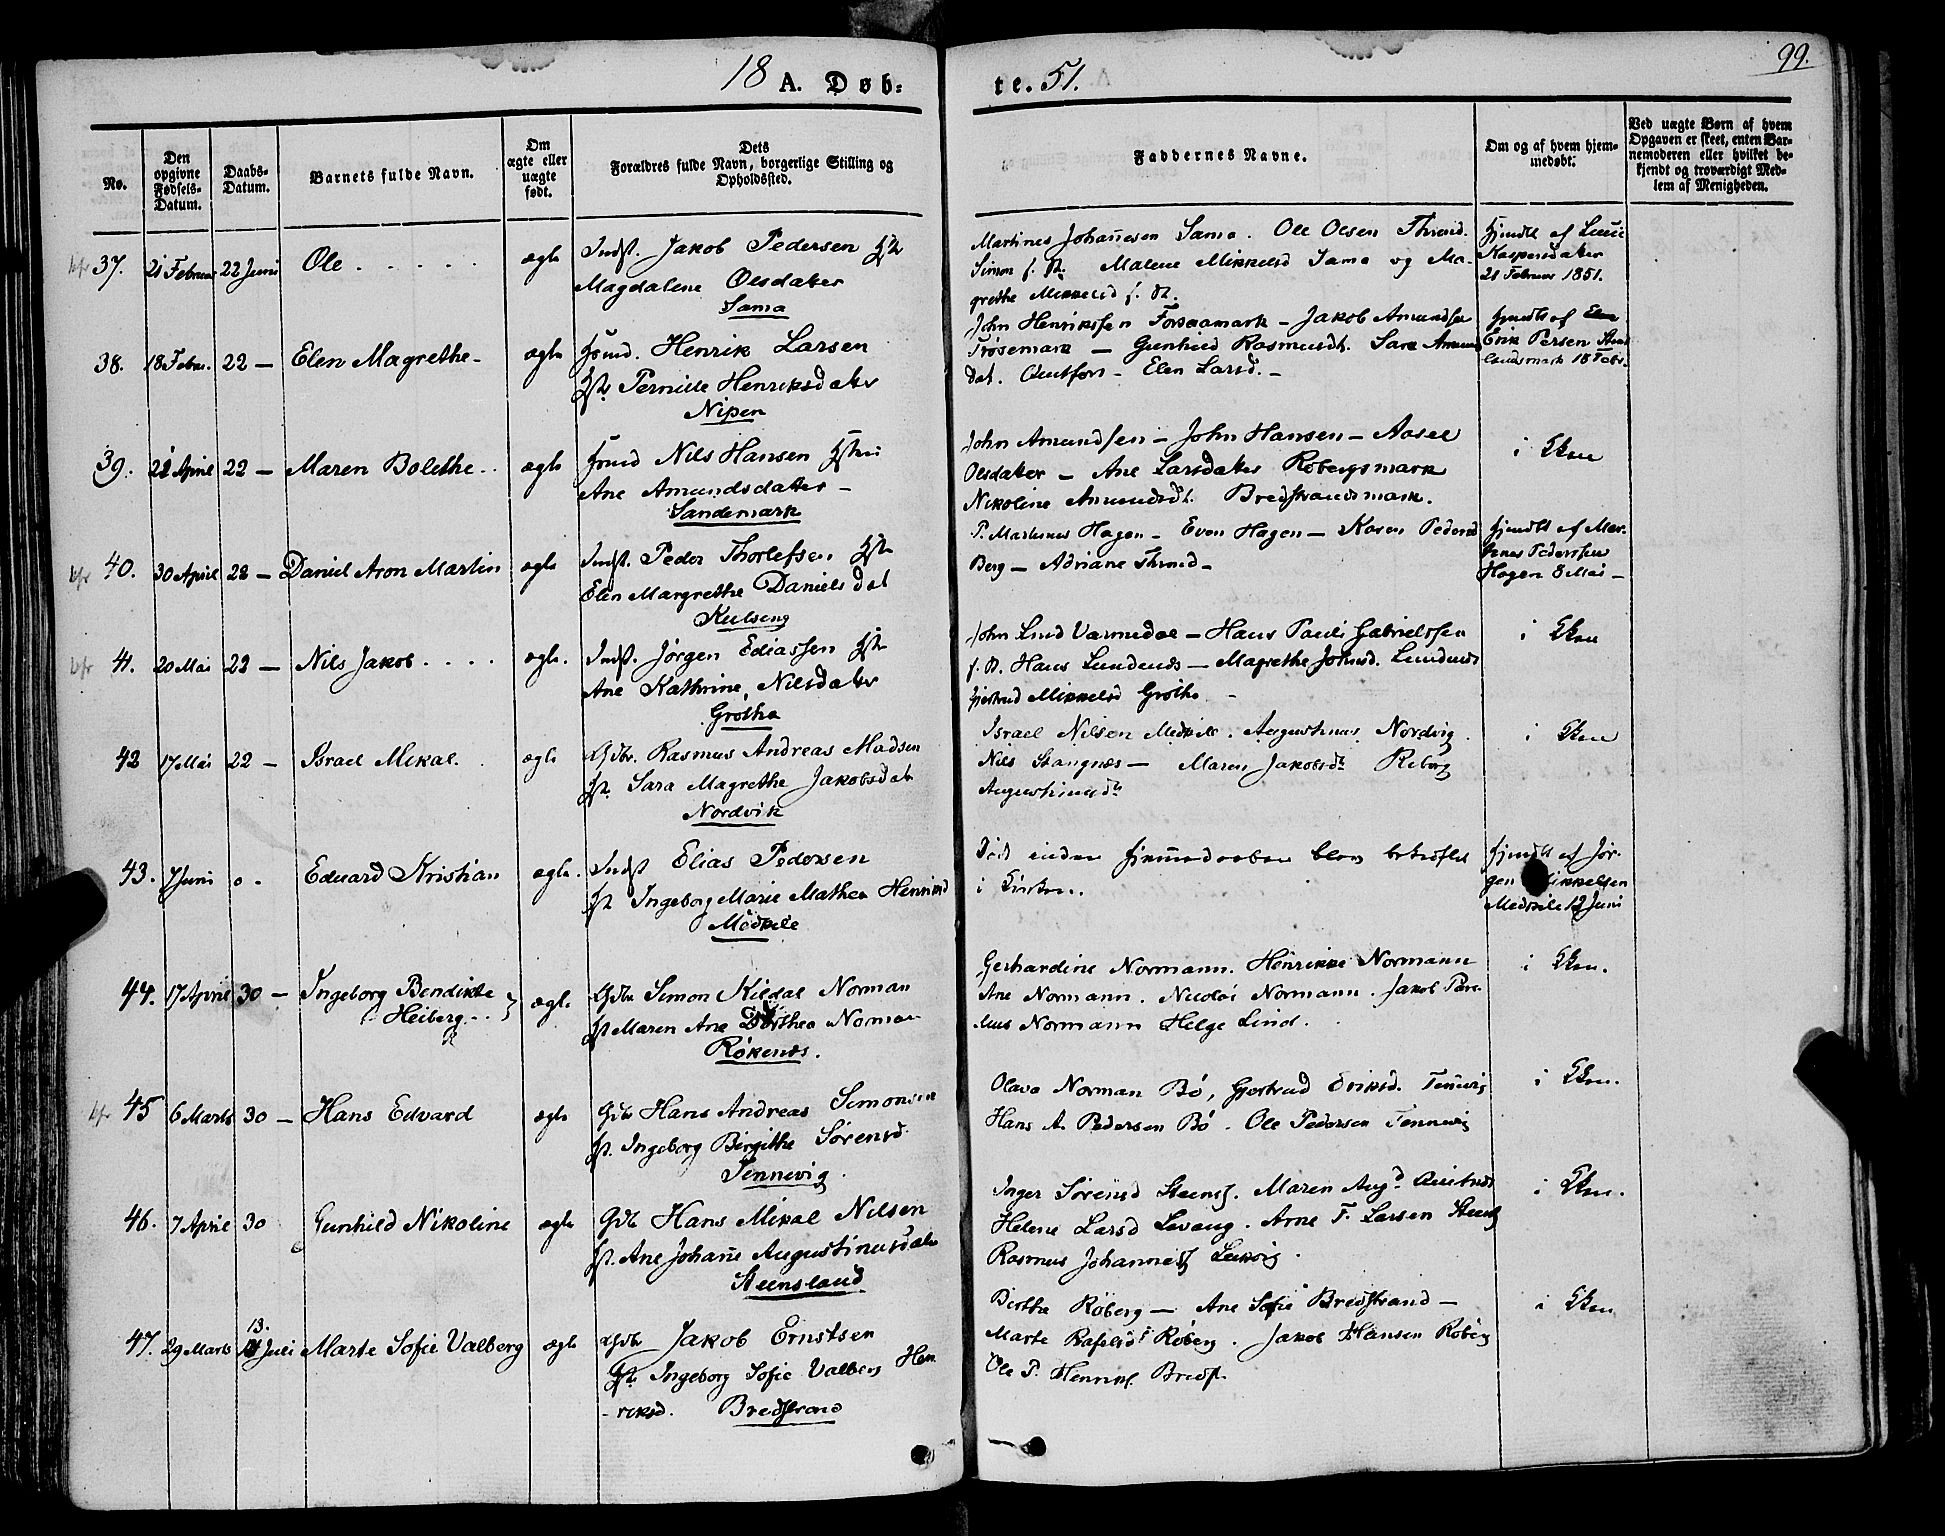 18 A. Døb=
te. 51.
99.
No.
Den opgivne Fødsels-Datum.
Daabs-Datum.
Barnets fulde Navn.
Om ægte eller uægte født.
Dets Forældres fulde Navn, borgerlige Stilling og Opholdssted.
Faddernes Navne.
Om og af hvem hjemmedøbt.
Ved uægte Børn af hvem Opgaven er skeet, enten Barnemoderen eller hvilket bekjendt og troværdigt Medlem af Menigheden.
37. 21 Februar 22 Juni Ole . . . . . ægte Indst. Jakob Pedersen
Magdalene Olsdatter
Sama
Martines Johannesen Sama. Ole Olsen
Simon Malene Mikkelsd Sama og Ma-
grethe Mikkelsd
Hjemdbt af
Kaspersdatter
21 Februar 1851.
38. 18 Febru. 22 — Elen Magrethe - ægte Henrik Larsen
Pernille Henriksdatter
Nipen
John Henrikssen — Jakob Amundsen
Trøsemark — Gunhild Rasmusdt. Sara
dat. — Elen Larsd. -
hjemdbt af
Erik Persen
18 Febr.
39. 21 April 22 — Maren Bolethe . . ægte Nils Hansen
Ane Amundsdatter -
Sandemark
John Amundsen — John Hansen —
Olsdatter — Ane Larsdatter Røbergsmark
Nikoline Amundsdt. Bredstrandsmark.
i
40. 30 April 22 — Daniel Aron Martin ægte Indst. Peder Thorlefsen
Elen Margrethe Daniels dat
Kulseng
P. Martinus Hagen - Even Hagen — Karen Pedersd
Berg — Adriane
hjemdbt af Mar-
Pederssen
Hagen 8 Mai -
41. 20 Mai 22 — Nils Jakob . . . . ægte. Indst. Jørgen Ediassen
Ane Kathrine, Nilsdatter
Grotha
John Lind Varmedal — Hans Pauli Gabrielssen
Hans Lundenes — Magrethe Johnsd. Lundenes
Gjertrud Mikkelsd Grotha -
i
42 17 Mai 22 — Israel Mikal . ægte Gdbr. Rasmus Andreas Madsen
Sara Magrethe Jakobsdat
Nordvik
Israel Nilsen Medkile. Augustinus Nordvig
Nils Stangnæs — Maren Jakobsdt Røberg
Augustinusdt
i
43. 7 Juni o. Eduard Kristian ægte. Indst Elias Pedersen
Ingeborg Marie Mathea Henriksd
Medkile
Død inden hjemmedaaben blev bekræftet
i Kirken.
hjemdbt af Jør-
gen Mikkelsen
Medkile 12 Juni
44. 17 April 30 — Ingeborg Bendikte
Heiberg . . ægte. Gdbr Simon Kildal Norman
Maren Ane Dorthea Norman
Røkenes.
Gerhardine Normann. Henrikke Normann
Ane Normann. Nicolai Normann. Jakob Pau-
lus Normann Helge Lind.
i
45 6 Marts 30 — Hans Edvard ægte Gdbr Hans Andreas Simonsen
Ingeborg Birgithe Sørensd.
Tennevig.
Olava Norman Bø, Gjertrud Eriksd. Tennevig
Hans A. Pedersen Bø. Ole Pedersen Tennevig
i
46. 7 April 30 Gunhild Nikoline ægte Gdbr Hans Mikal Nilsen
Ane Johanne Augustinusdatr
Steensland
Inger Sørensd Steensl. Maren Augd
Helene Larsd Levang. Arne F. Larsen
Rasmus Johanness Leikvig.
i
47. 29 Marts 13. Juli Marte Sofie Valberg ægte Gdbr Jakob Ernstsen
Ingeborg Sofie Valberg Hen
- riksd. Bredstrand
Bertha Røberg — Ane Sofie Bredstrand —
Marte Rafelsdt Røberg. Jakob Hansen Røberg
Ole P. Henriks. Bredst.
i